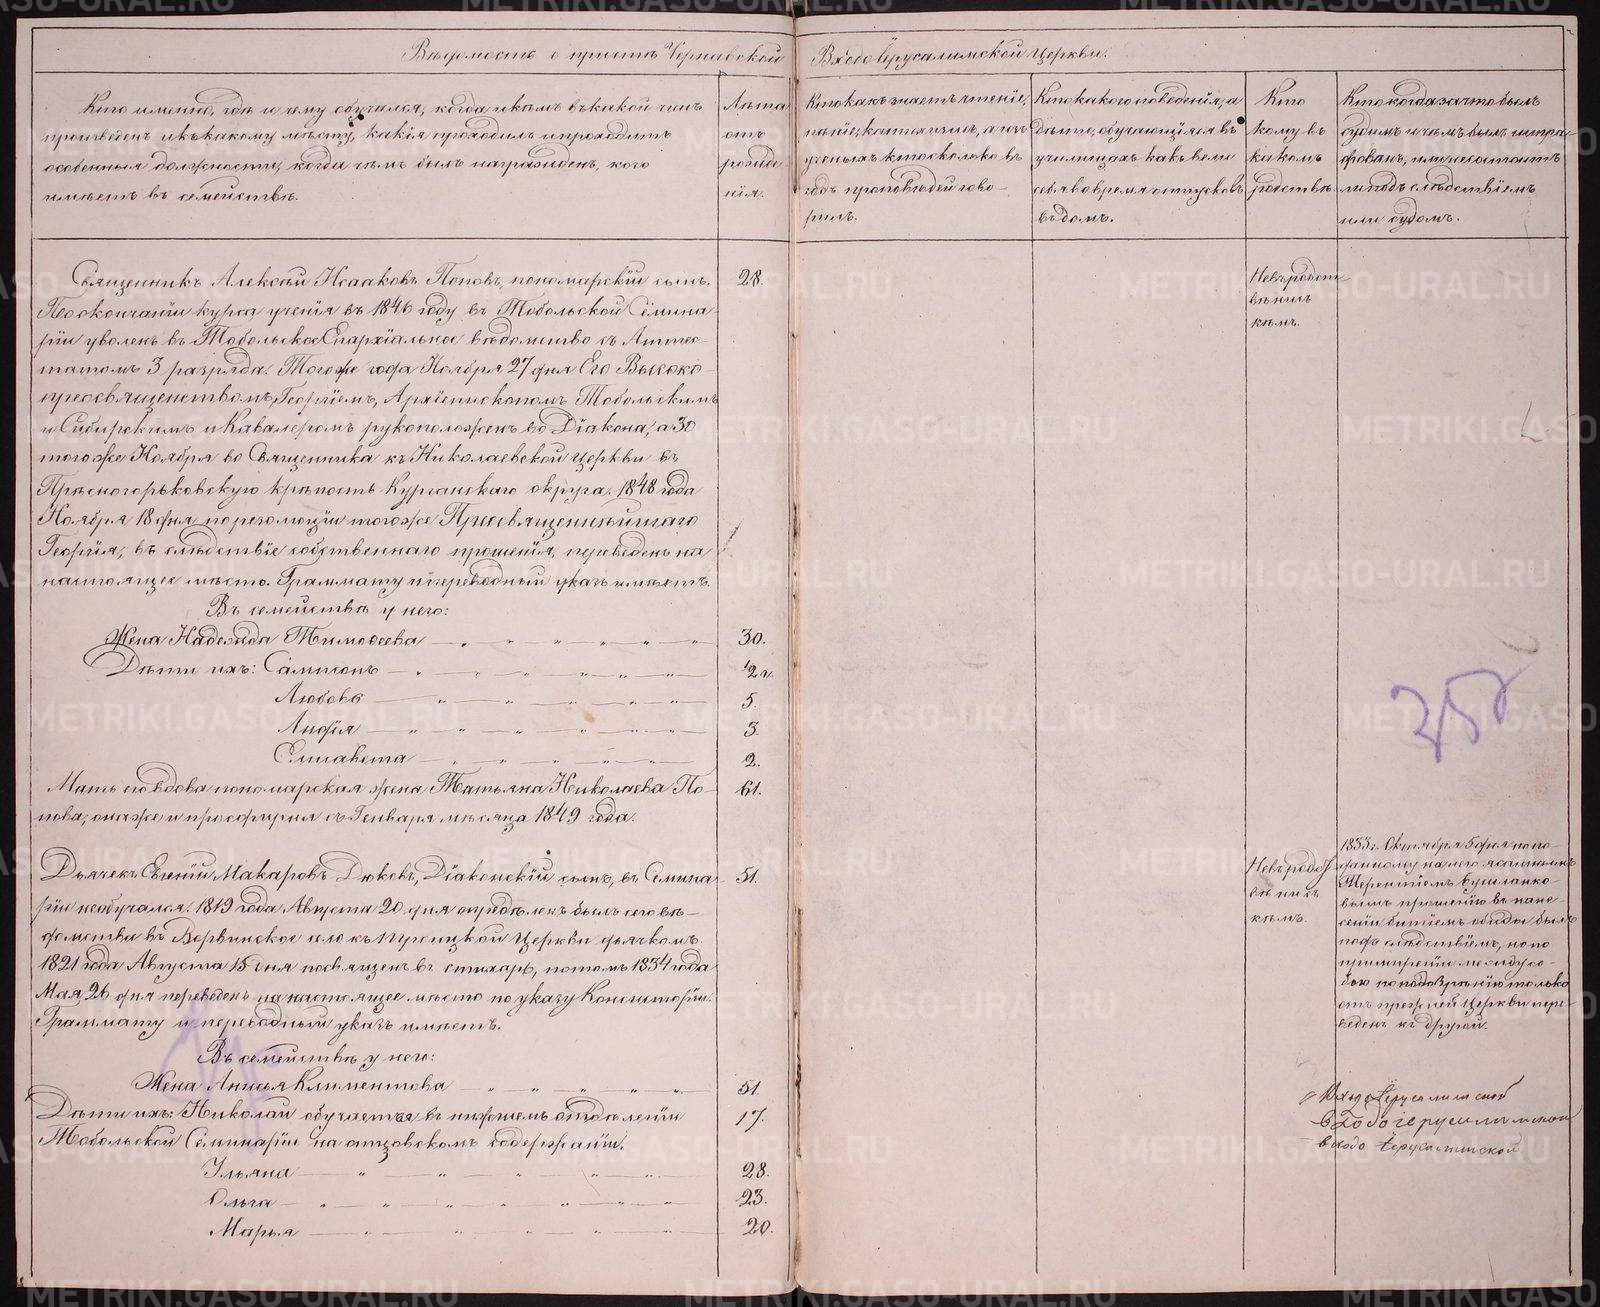 Вѣдомость о причтѣ Чернавской Входоіерусалимской Церкви.
Кто именно, гдѣ и чему обучался, когда и кѣмъ въ какой чинъ
произведенъ и къ какому мѣсту, какія проходилъ и проходитъ
особенныя должности, когда чѣмъ былъ награжденъ, кого
имѣетъ въ семействѣ.
Лѣта
отъ
рожде-
нія.
Кто какъ знаетъ чтеніе,
пѣніе, катихизисъ, а изъ
ученыхъ кто сколько въ
годъ проповѣдей гово-
рилъ.
Кто какого поведенія, а
дѣти, обучающіяся въ
училищахъ какъ вели
себя во время отпусковъ
въ домъ.
Кто
кому въ
какомъ
родствѣ.
Кто когда за что былъ
судимъ и чѣмъ былъ штра-
фованъ, или не состоитъ
ли подъ слѣдствіемъ
или судомъ.
Священникъ Алексѣй Исааковъ Поповъ, пономарскій сынъ. 28.
По окончаніи курса ученія въ 1846 году въ Тобольской Семина-
ріи уволенъ въ Тобольское Епархіальное вѣдомство съ Аттес-
татомъ 3 разряда. Того же года Ноября 27 дня Его Высоко-
преосвященствомъ, Георгіемъ, Архіепископомъ Тобольскимъ
и Сибирскимъ и Кавалеромъ рукоположенъ во Діакона, а 30
того же Ноября во Священника къ Николаевской Церкви въ
Прѣсногорьковскую крѣпость Курганскаго округа. 1848 года
Ноября 18 дня по резолюціи того же Преосвященнѣйшаго
Георгія, въ слѣдствіе собственнаго прошенія, переведенъ на
настоящее мѣсто. Граммату и переводный указъ имѣетъ.
Въ семействѣ у него:
Жена Надежда Тимоѳеева 30.
Дѣти ихъ: Сампсонъ 1/2 г.
Любовь 5.
Лидія 3.
Елисавета 2.
Мать его вдова пономарская жена Татьяна Николаева По- 61.
пова, она же и просфирня съ Генваря мѣсяца 1849 года.
Невъ родст
вѣ ни съ
кѣмъ.
Дьячекъ Евгеній Макаровъ Дюковъ, Діаконскій сынъ, въ Семина- 51.
ріи не обучался. 1819 года Августа 20 дня опредѣленъ былъ сего вѣ-
домства въ село къ Троицкой Церкви дьячкомъ.
1821 года Августа 15 дня посвященъ въ стихарь, потомъ 1834 года
Мая 26 дня переведенъ на настоящее мѣсто по указу Консисторіи.
Граммату и переводный указъ имѣетъ.
Въ семействѣ у него:
Жена Анисья Климентова 51.
Дѣти ихъ: Николай обучается въ низшемъ отдѣленіи 17.
Тобольской Семинаріи на отцовскомъ содержаніи.
Ульяна 28.
Ольга 23.
Марья 20.
Невъ родст
вѣ ни съ
кѣмъ.
1833 г. Октября 5 дня по по-
данному на него
Терентіемъ
вымъ прошенію въ нане
сеніи битіемъ обиды былъ
подъ слѣдствіемъ, но по
примиреніи между со-
бою по подозрѣнію только
отъ прежней Церкви пере
веденъ къ другой.
Входо Іерусалимской
входо іерусалимской
входо Іерусалимской
METRIKI.GASO-URAL.RU